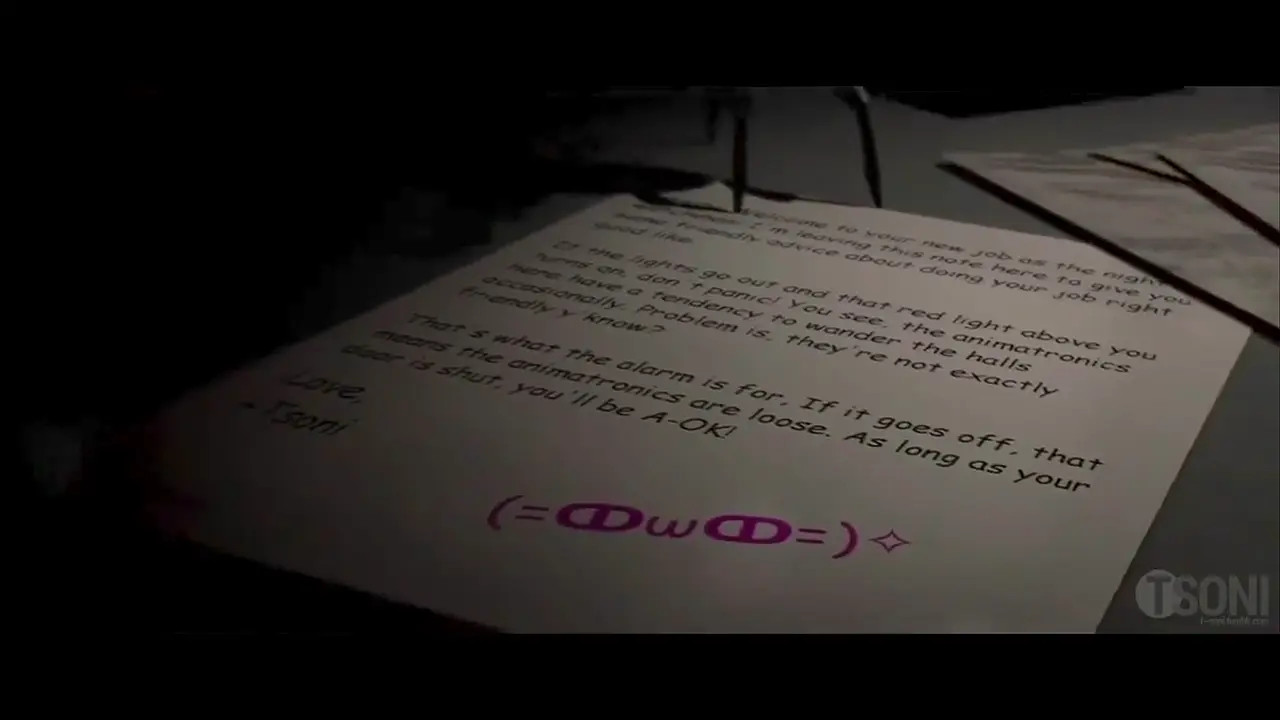 Welcome to your new job as the night
I'm leaving this note here to give you
some friendly advice about doing your job right
good like.
If the lights go out and that red light above you
turns on, don't panic! You see, the animatronics
here have a tendency to wander the halls
occasionally. Problem is, they're not exactly
friendly y'know?
That's what the alarm is for. If it goes off, that
means the animatronics are loose. As long as your
door is shut, you'll be A-OK!
Love,
- Tsoni
(=ↀωↀ=)✧
TSONI